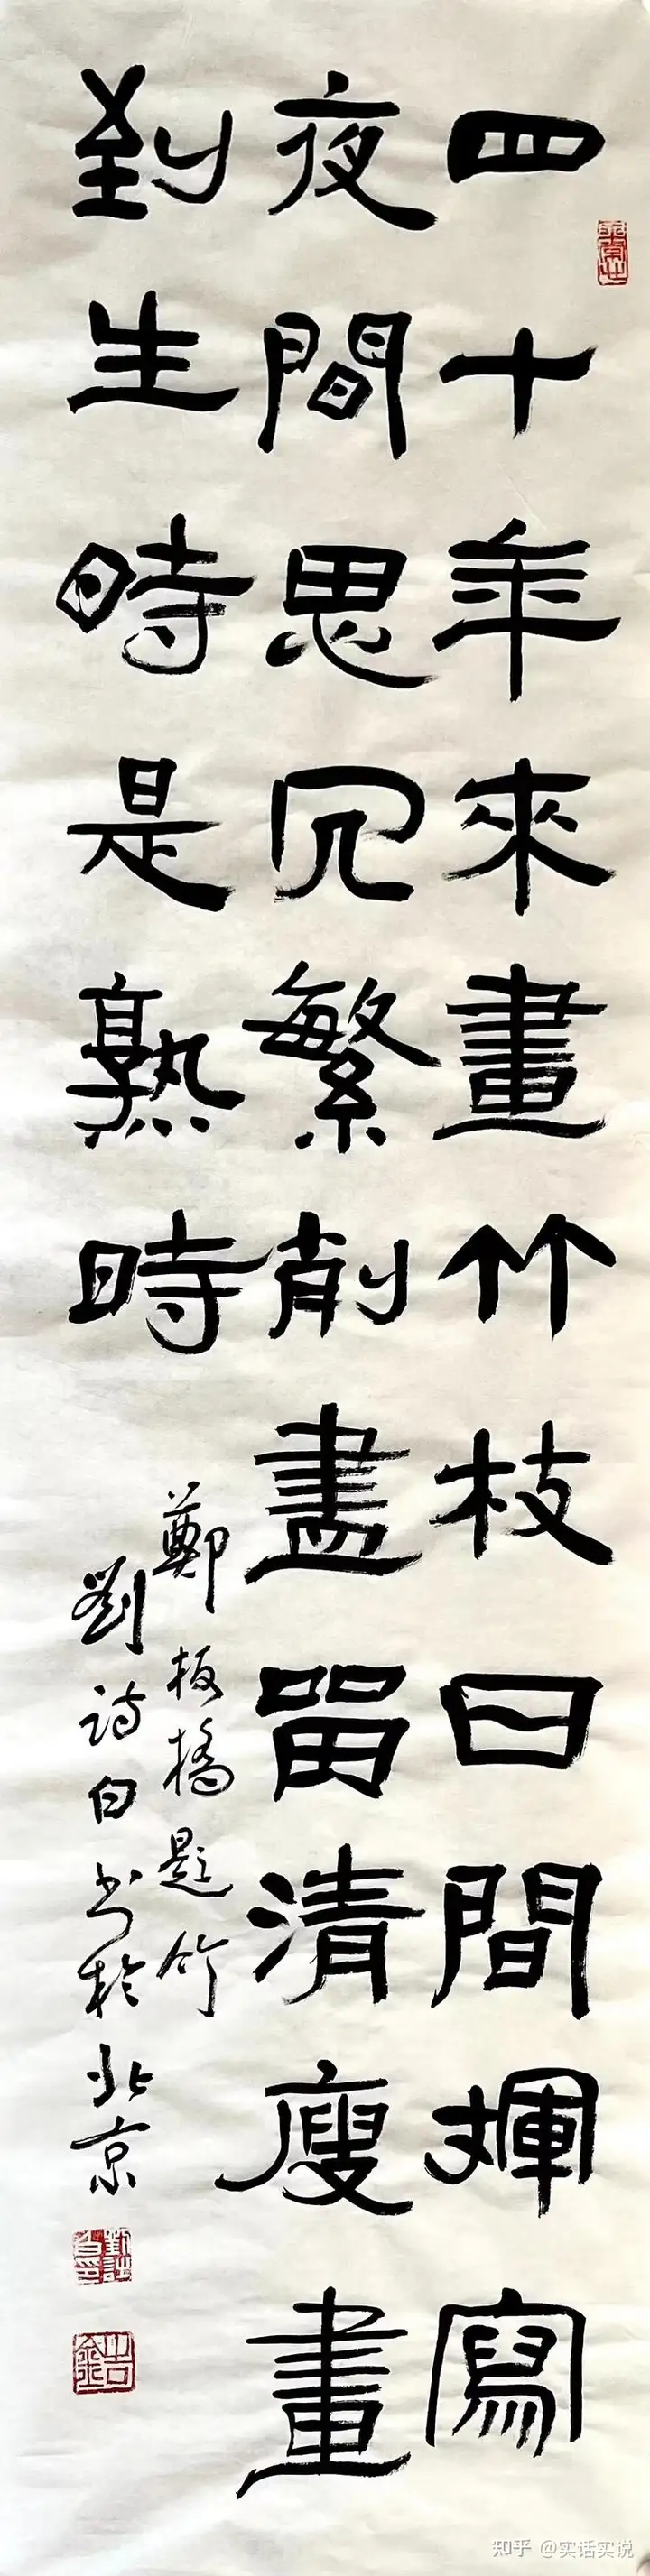 四十年來畫竹枝日間揮寫
夜間思冗繁削盡留清瘦畫
到生時是熟時
鄭板橋題竹
劉詩白书於北京
知乎 @实话实说